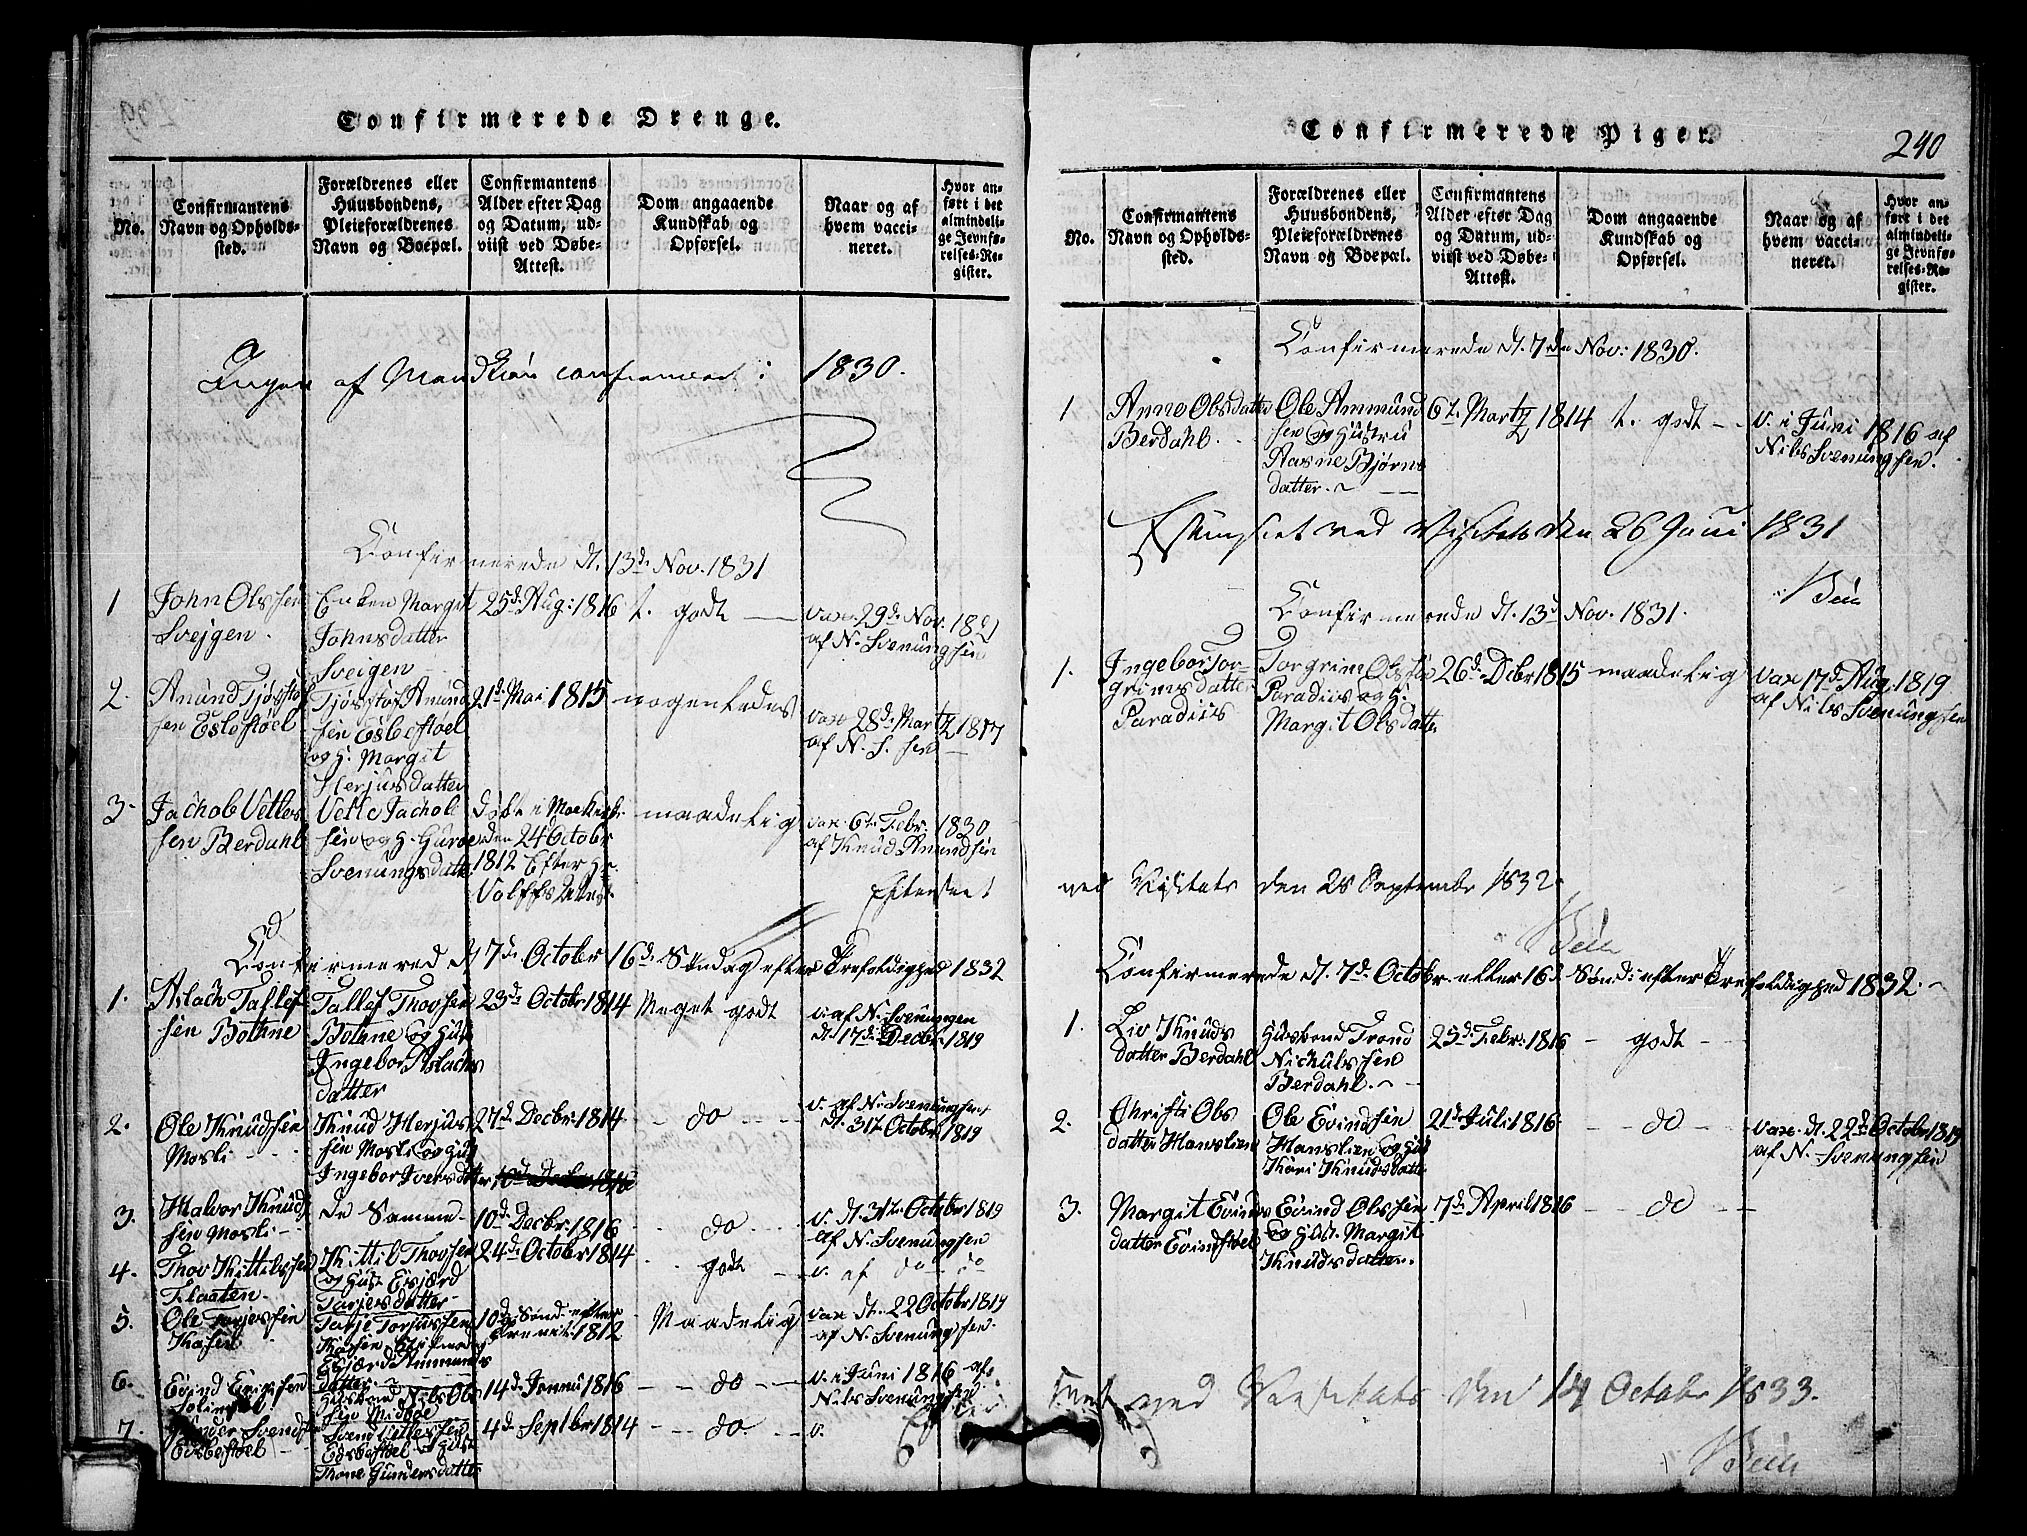 Confirmerede Drenge.
No.
Confirmantens
Navn og Opholds-
sted.
Forældrenes eller
Huusbondens,
Pleieforældrenes
Navn og Boepæl.
Confirmantens
Alder efter Dag
og Datum, ud-
viist ved Døbe-
Attest.
Dom angaaende
Kundskab og
Opførsel.
Naar og af
hvem vacci-
neret.
Hvor an-
ført i det
almindeli-
ge Jevnfø-
relses-Re-
gister.
Ingen af Mandkiøn confirmeret i 1830.
Confirmerede d. 13d Nov. 1831
1
John Olssen
Svejgen.
Enken Margit
Johnsdatter
Sveigen
25d. Aug: 1816
t. godt
vax. 29d. Nov.
af N. Svenungsen
2.
Anund Tjøstof
sen Eslestoel
Tjøstof Anund
sen Eslestoel
og H. Margit
Herjusdatter
21d. Mai 1815
nogenledes
vax 28d. Martz 1817
af N. S. sen
3.
Jachob Vetles
sen Berdahl
Vetle Jachob
sen og H. Guroe
Svenungsdatte
døbt i
den 24 Octobr
1812 Efter Hr.
Volffs Attest.
maadelig
vax. 6te Febr. 1830
af Knud Amundsen
Efterseet
Confirmered d 7d. Octobr 16d. Søndag efter Trefoldighed 1832
1.
Aslach Tallef
sen Bothne
Tallef Thovsen
Bothne og Hust
Ingebor Aslachs
datter
23d. Octobr 1814
Meget godt
v: af N. Svenungen
d. 17d. Decbr. 1819
2.
Ole Knudsen
Mosli
Knud Herjus
sen Mosli og Hust
Ingebor Iversdatter
27d. Decbr. 1814
do
v. af N. Svenungsen
d. 31t. Octobr 1819
3.
Halvor Knud
sen Mosli
de Samme
10d. Decbr. 1816
do
v. d. 31te October 1819
af N. Svenungsen
4.
Thov Kittilssen
Flaaten.
Kittil Thovsen
og Hust Eisjærd
Tarjersdatter
24d. October 1814
godt
v. af do do
5.
Ole Torjussen
Kosen
Tarje Torjussen
Kosen
Esjærd Ammunds
datter
10d. Sønd. efter
Trenit. 1812
Maadelig
vax d. 22 Octobr 1819
af N. Svenungsen.
6.
Evind
Husbond Nils Ols
sen Midbøe
14d. Jannu 1816
do
v. i Juni 1816 af
Nils Svenungsen
7.
Gunder Svends
Edsbestoel
Svend
Edsbestoel og Hust
Thone Gundersdatter
4d. Septbr 1814
do
v.
Confirmerede Piger.
240
No.
Confirmantens
Navn og Opholds-
sted.
Forældrenes eller
Huusbondens,
Pleieforældrenes
Navn og Boepæl.
Confirmantens
Alder efter Dag
og Datum, ud-
viist ved Døbe-
Attest.
Dom angaaende
Kundskab og
Opførsel.
Naar og af
hvem vacci-
neret.
Hvor an-
ført i det
almindeli-
ge Jevnfø-
relses-Re-
gister.
Confirmerede d. 7de Nov: 1830.
1
Anne Olsdatter
Berdahl.
Ole Ammund
sen og Hustru
Aasne Bjørns
datter.
6t. Martz 1814
t. godt
v. i Juni 1816 af
Nils Svenungsen.
ved Visitats den 26 Juni 1831
Confirmerede d. 13d Nov. 1831.
1.
Ingebor Tor-
grimsdatter
Paradiis
Torgrim Olssen
Paradiis og H.
Margit Olsdatter
26d. Dcbr 1815
maadelig
vax 17d Aug. 1819
af Nils Svenungsen
ved Visitats den 28 September 1832.
Confirmerede d. 7d. Octobr. eller 16d. Sønd: efter Trefoldighed 1832.
1.
Liv Knuds
datter Berdahl
Husbond Trond
Nichulssen
Berdahl.
23d. Febr. 1816
godt
2.
Christi Ols
datter Hanslien
Ole Evindsen
Hanslien og Hust
Kari Knudsdatter
21d Juli 1816
do
vax. d. 22d. Octobr 1819
af N. Svenungsen
3.
Margit Evinds
datter Evindstoel
Evind Olssen
og Hust. Margit
Knudsdatter.
7d. April 1816
do
ved Visitats den 14 Octobr 1833.